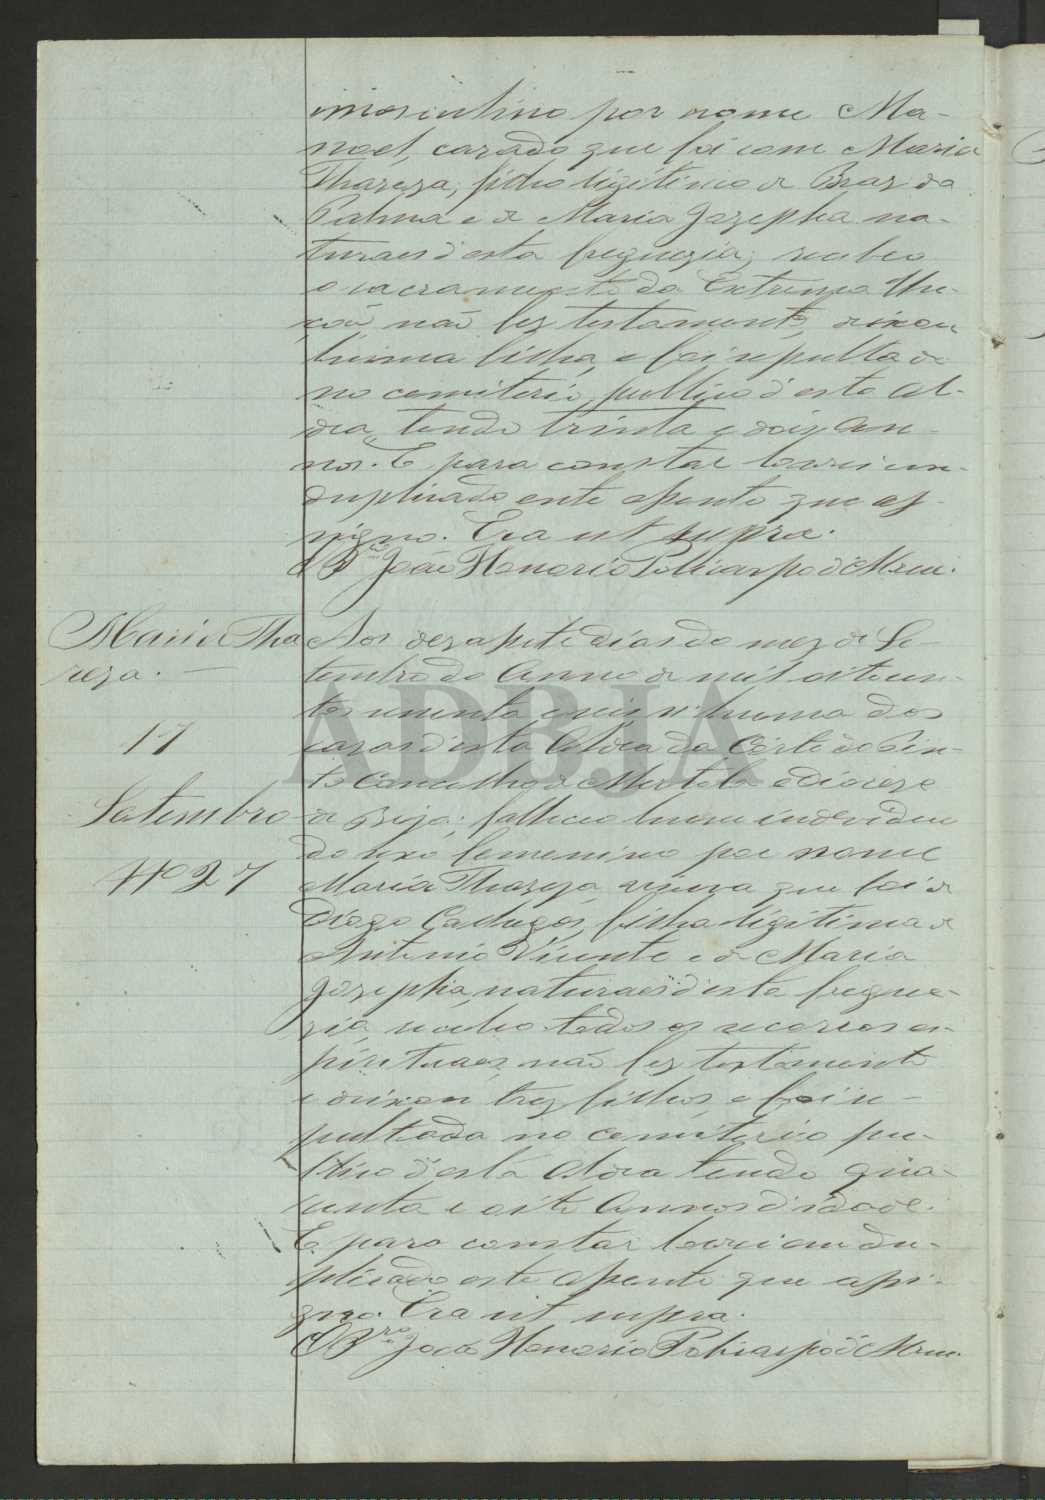 masculino por nome Ma-
noel, cazado que foi com Maria
Thareza, filholigitimo de Braz da
Palma e de Maria Jozepha na-
turaes d'esta freguezia; recebeo
o sacramento da Extrema Un-
não fez testamento, deixou
huma filha, e foi sepultado
no cemiterio publico d'esta Al-
dea, tendo trinta e dois an-
nos. E para constar lavrei em
duplicado este assento que as-
signo. Era ut supra.
O Pro João Honorio Policarpo d'
Maria Tha
reza.
17
Setembro
Nº 27
Aos dezasete dias do mez de Se-
tembro do anno de mil oitocen-
tos e seis n'huma das
cazas d'esta Aldea da Côrte do Pin-
to Concelho de Mertola e Diocese
de Beja; falleceo hum individuo
do sexo femenino por nome
Maria Thareza, viuva que foi de
Diogo filha ligitima de
Antonio Vicente e de Maria
Jozepha, naturaes d'esta fregue-
zia, recebeo todos os socorros es-
pirituaes, não fez testamento
e deixou trez filhos, e foi se-
pultada no cemiterio pu-
blico d'esta Aldea tendo
e oito annos d'idade.
E para constar lavrei em du-
plicado este assento que assi-
gno. Era ut supra.
O Pro João Honorio Policarpo d'
ADBJA